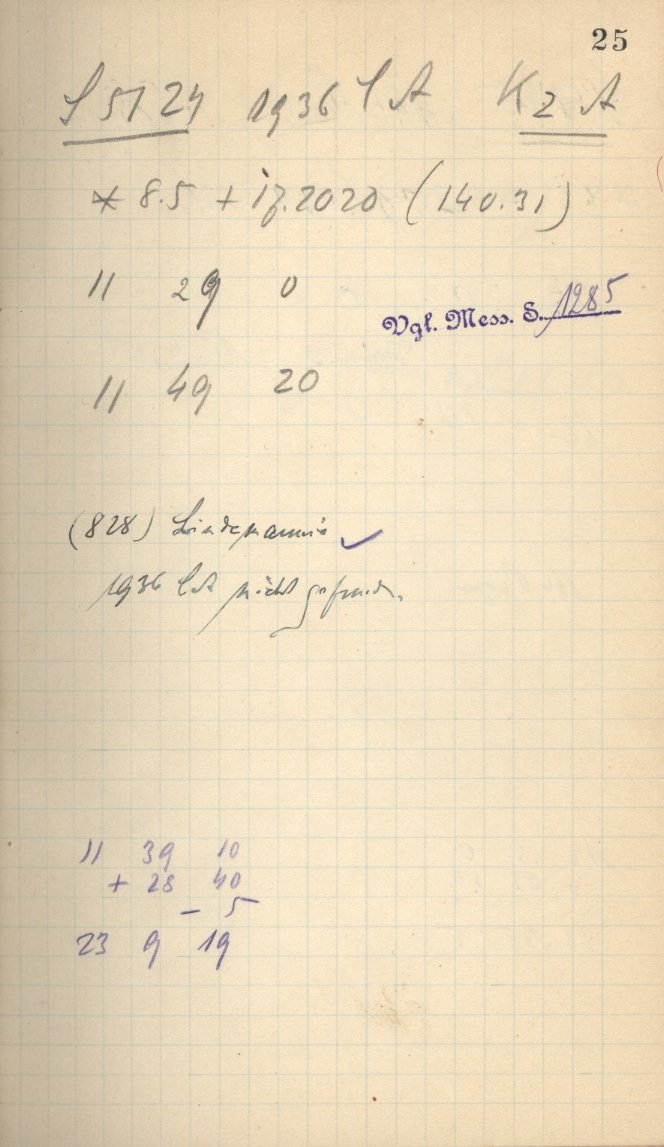 25
S 5124 1936 CA K2 A
* 8.5 + 17.2020 (140.31)
11 29 0
Vgl. Mess. S. 1285
11 49 20
(828) Lindemannia ✓
1936 CA nicht gefunden.
11 39 10
+ 28 40
- 5
23 9 19